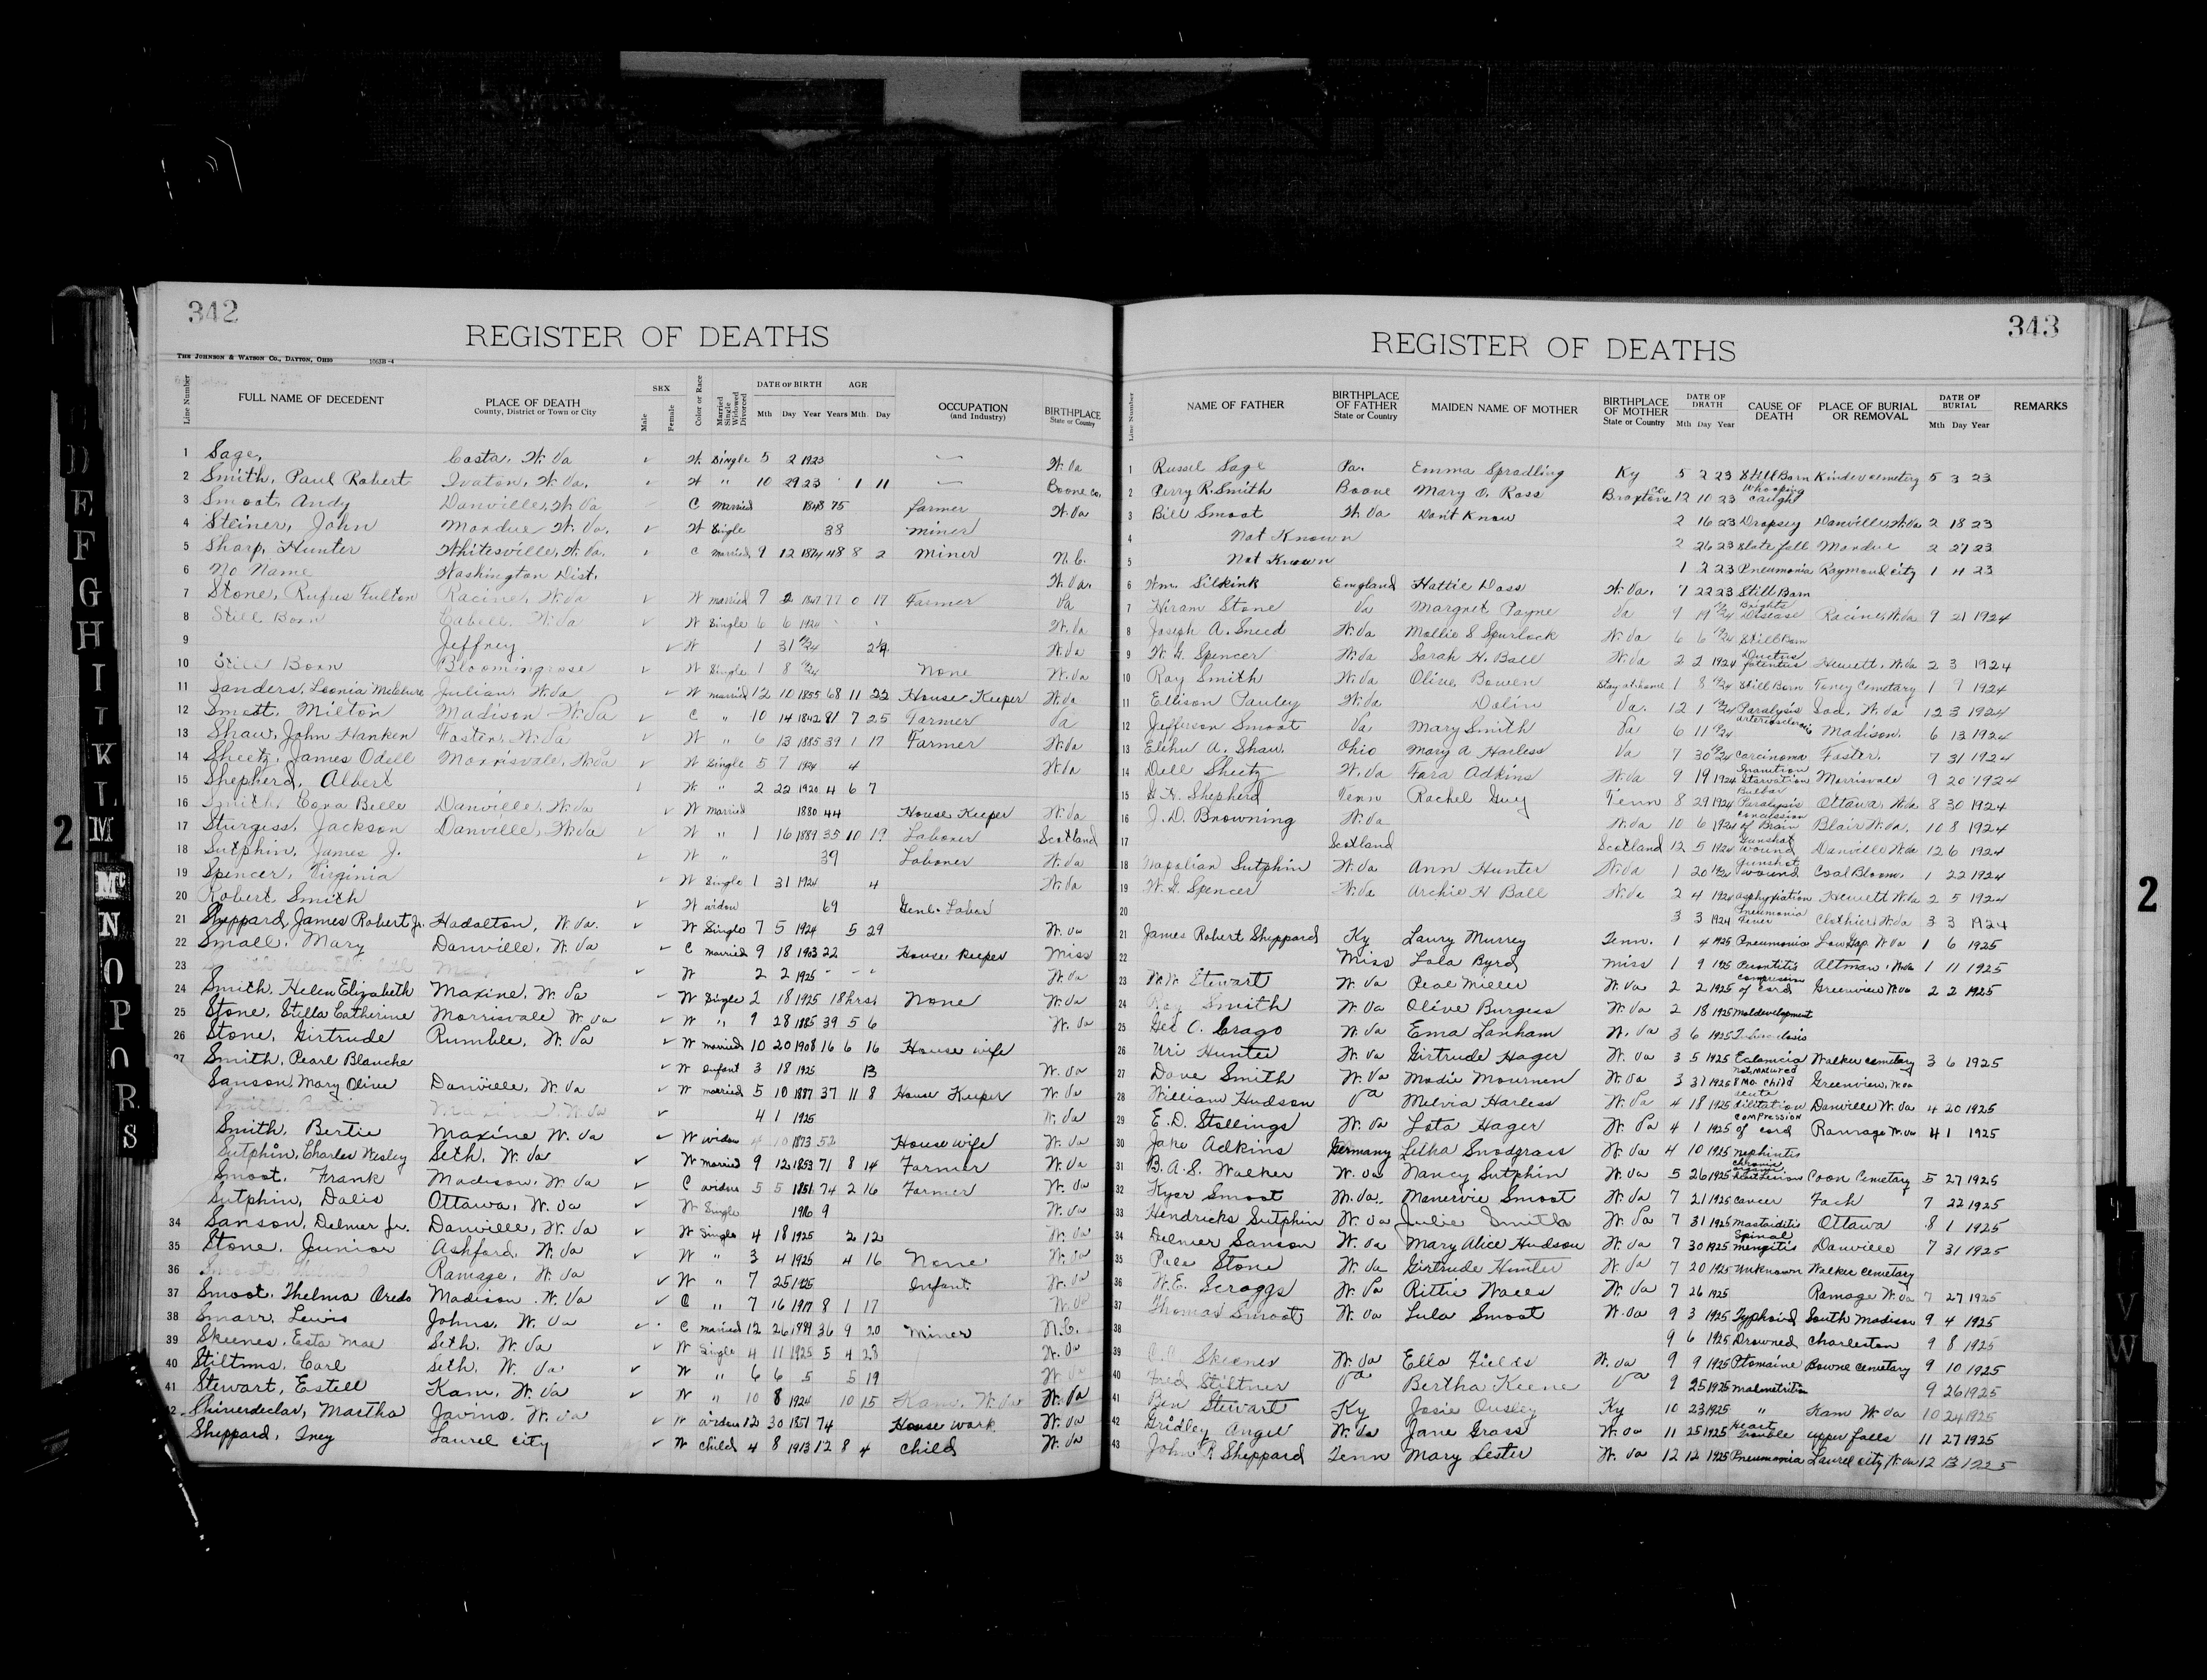 342
REGISTER OF DEATHS
THE JOHNSON & WATSON CO., DAYTON, OHIO 1063B-4
Line Number FULL NAME OF DECEDENT PLACE OF DEATH County, District or Town or City SEX Male Female Color or Race Married Single Widowed Divorced DATE OF BIRTH Mth Day Year AGE Years Mth. Day OCCUPATION (and Industry) BIRTHPLACE State or Country
1 Sage, Costa, W. Va W Single 5 2 1923 W. Va
2 Smith, Paul Robert Ivaton, W. Va. W " 10 29 23 1 11 Boone Co.
3 Smoot, Andy Danville, W. Va C Married 1848 75 farmer W. Va
4 Steiner, John Mordue W. Va. W Single 38 miner
5 Sharp, Hunter Whitesville, W. Va. C married 9 12 1874 48 8 2 Miner N. C.
6 No Name Washington Dist. W. Va.
7 Stone, Rufus Fulton Racine, W. Va W married 9 2 1847 77 0 17 Farmer Va
8 Still Born Cabell, W. Va W Single 6 6 1924 W. Va
9 Jeffrey W 1 31 W. Va
10 Still Born Bloomingrose W Single 1 8 None W. Va
11 Sanders, Leonia Julian W. Va W married 12 10 1855 68 11 22 House Keeper W. Va
12 Smoot, Milton Madison W. Va C " 10 14 1842 81 7 25 Farmer Va
13 Shaw, John Hanken Foster, W. Va W " 6 13 1885 39 1 17 Farmer W. Va
14 Sheetz, James Odell Morrisvale, W. Va W Single 5 7 1924 4 W. Va
15 Shepherd, Albert W " 2 22 1920 4 6 7
16 Smith, Cora Belle Danville, W. Va W married 1880 44 House Keeper W. Va
17 Sturgess, Jackson Danville, W. Va W " 1 16 1889 35 10 19 Laborer Scotland
18 Sutphin, James J. W " 39 Laborer W. Va
19 Spencer, Virginia W Single 1 31 1924 4 W. Va
20 Robert Smith W widow 69 Genl. Labor
21 Sheppard, James Robert Jr. Hadalton, W. Va. W Single 7 5 1924 5 29 W. Va
22 Small, Mary Danville, W. Va C married 9 18 1903 22 House Keeper Miss
23 W 2 2 1925 W. Va
24 Smith, Helen Elizabeth Maxine, W. Va W Single 2 18 1925 18 hrs. None W. Va
25 Stone, Stella Catherine Morrisvale W. Va W " 9 28 1885 39 5 6 W. Va
26 Stone, Girtrude Rumble, W. Va W married 10 20 1908 16 6 16 House wife
27 Smith, Pearl Blanche W Infant 3 18 1925 13 W. Va
Sanson, Mary Olive Danville, W. Va W married 5 10 1887 37 11 8 House Keeper W. Va
4 1 1925 W. Va
Smith, Bertie Maxine W. Va W widow 4 10 1873 52 House wife W. Va
Sutphin, Charles Wesley Seth, W. Va W married 9 12 1853 71 8 14 Farmer W. Va
Smoot, Frank Madison, W. Va C widow 5 5 1851 74 2 16 Farmer W. Va
Sutphin, Dalis Ottawa, W. Va W Single 1916 9 W. Va
34 Sanson, Delmer Jr. Danville, W. Va W Single 4 18 1925 2 12 W. Va
35 Stone, Junior Ashford, W. Va W " 3 4 1925 4 16 None W. Va
36 Ramage, W. Va W " 7 25 1925 Infant W. Va
37 Smoot, Thelma Oreda Madison W. Va C " 7 16 1917 8 1 17 W. Va
38 Smarr, Lewis Johns, W. Va C married 12 26 36 9 20 Miner N. C.
39 Skeenes, Esta Mae Seth, W. Va W Single 4 11 1925 5 4 28 W. Va
40 Stiltnns, Carl Seth, W. Va W " 6 6 5 5 19 W. Va
41 Stewart, Estell Kam, W. Va W " 10 8 1924 10 15 Kam, W. Va W. Va
Martha Javins, W. Va W widow 12 30 1851 74 House work W. Va
Sheppard, Iney Laurel City W child 4 8 1913 12 8 4 child W. Va
343
REGISTER OF DEATHS
Line Number NAME OF FATHER BIRTHPLACE OF FATHER State or Country MAIDEN NAME OF MOTHER BIRTHPLACE OF MOTHER State or Country DATE OF DEATH Mth Day Year CAUSE OF DEATH PLACE OF BURIAL OR REMOVAL DATE OF BURIAL Mth Day Year REMARKS
1 Russel Sage Pa. Emma Spradling Ky 5 2 23 Still Born Kinder cemetery 5 3 23
2 Perry R. Smith Boone Mary O. Ross Braxton Co. 12 10 23 Whooping Caught
3 Bill Smoot W. Va Don't Know 2 16 23 Dropsey Danville, W. Va 2 18 23
4 Not Known 2 26 23 Slate fall Mordue 2 27 23
5 Not Known 1 2 23 Pneumonia Raymond city 1 4 23
6 Wm. Silkink England Hattie Dass W. Va. 7 22 23 Still Born
7 Hiram Stone Va Margret Payne Va 9 19 Brights Disease Racine, W. Va 9 21 1924
8 Joseph A. Sneed W. Va Mollie S Spurlock W. Va 6 6 Still Born
9 W. G. Spencer W. Va Sarah H. Ball W. Va 2 2 1924 Ductus patentus Hewett, W. Va 2 3 1924
10 Roy Smith W. Va Olive Bowen Stay at home 1 8 Still Born Toney Cemetary 1 9 1924
11 Ellison Pauley W. Va. Dolin Va. 12 1 Paralysis Sod, W. Va 12 3 1924
12 Jefferson Smoot Va Mary Smith Va 6 11 arteriosclerosis Madison, 6 13 1924
13 Elehu A. Shaw Ohio Mary A Harless Va 7 30 Carcinoma Foster, 7 31 1924
14 Dell Sheetz W. Va Fara Adkins W. Va 9 19 1924 Inanition Starvation Morrisvale 9 20 1924
15 G. W. Shepherd Tenn Rachel Guy Tenn 8 29 1924 Bulbar Paralysis Ottawa, W. Va 8 30 1924
16 J. D. Browning W. Va W. Va 10 6 1924 Concussion of Brain Blair W. Va. 10 8 1924
17 Scotland Scotland 12 5 1924 Gunshot wound Danville W. Va 12 6 1924
18 Napolian Sutphin W. Va Ann Hunter W. Va 1 20 Gunshot wound Coal Bloom. 1 22 1924
19 W. G. Spencer W. Va Archie H Ball W. Va 2 4 1924 asphyxiation Hewett W. Va 2 5 1924
20 3 3 1924 Pneumonia Fever Clothier W. Va 3 3 1924
21 James Robert Sheppard Ky Laury Murrey Tenn. 1 4 1925 Pneumonia Low Gap, W. Va 1 6 1925
22 Miss Lola Byrd Miss 1 9 1925 Perontitis Altman, W. Va 1 11 1925
23 W. W. Stewart W. Va Peal Miller W. Va 2 2 1925 compression of cord Greenview W. Va 2 2 1925
24 Roy Smith W. Va Olive Burgess W. Va 2 18 1925 Maldevelopment
25 Geo C. Crago W. Va Ema Lanham W. Va 3 6 1925 Tuberculosis
26 Uri Hunter W. Va Girtrude Hager W. Va 3 5 1925 Eclamcia Walker cemetary 3 6 1925
27 Dave Smith W. Va Madie Mournen W. Va 3 31 1925 Not matured 8 Mo. child Greenview, W. Va
28 William Hudson Va Melvia Harless W. Va 4 18 1925 acute dilitation Danville W. Va 4 20 1925
29 E. D. Stollings W. Va Lota Hager W. Va 4 1 1925 compression of cord Ramage W. Va 4 1 1925
30 Jake Adkins Germany Litha Snodgrass W. Va 4 10 1925 nephintis
31 B. A. S. Walker W. Va Nancy Sutphin W. Va 5 26 1925 chronic organic heart lesions Coon Cemetary 5 27 1925
32 Kyer Smoot W. Va. Manervie Smoot W. Va 7 21 1925 cancer Fach 7 22 1925
33 Hendricks Sutphin W. Va Julie Smith W. Va 7 31 1925 Mastoiditis Ottawa 8 1 1925
34 Delmer Sanson W. Va Mary Alice Hudson W. Va 7 30 1925 Spinal mengitis Danville 7 31 1925
35 Pale Stone W. Va Girtrude Hunter W. Va 7 20 1925 Unknown Walker cemetary
36 W. E. Scraggs W. Va Rittie Walls W. Va 7 26 1925 Ramage W. Va 7 27 1925
37 Thomas Smoot W. Va Lula Smoot W. Va 9 3 1925 Typhoid South Madison 9 4 1925
38 9 6 1925 Drowned Charleston 9 8 1925
39 Skeenes W. Va Ella Fields W. Va 9 9 1925 Ptomaine Bowne Cemetary 9 10 1925
40 Fred Stiltner Va Bertha Keene Va 9 25 1925 malnutrition 9 26 1925
41 Ben Stewart Ky Josie Ousley Ky 10 23 1925 " Kam W. Va 10 24 1925
42 Gridley Angel W. Va Jane Grass W. Va 11 25 1925 Heart Trouble upper falls 11 27 1925
43 John R Sheppard Tenn Mary Lester W. Va 12 12 1925 Pneumonia Laurel city W. Va 12 13 1925
D
E
F
G
H
I
K
L
M
Mc
N
O
P
R
S
2
2
V
W